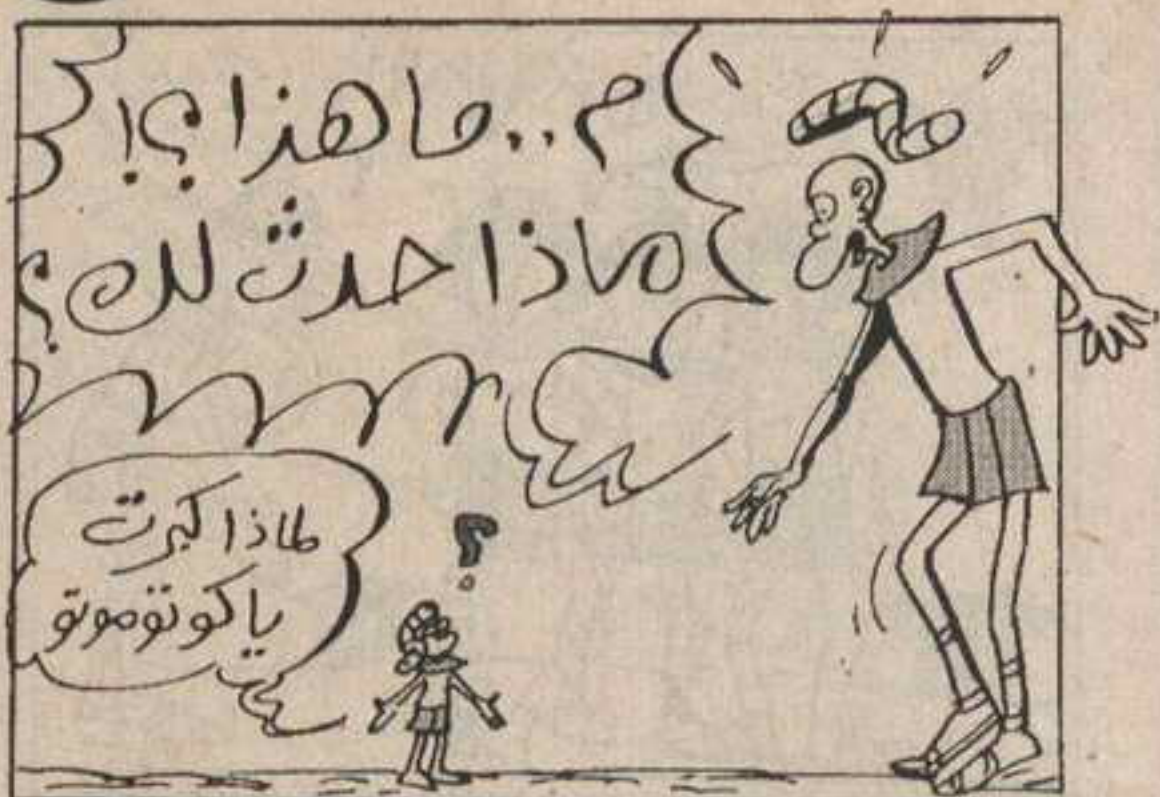 م.. ما هذا ؟!
ماذا حدث لك ؟
؟
لماذا كبرت
يا كوتوموتو